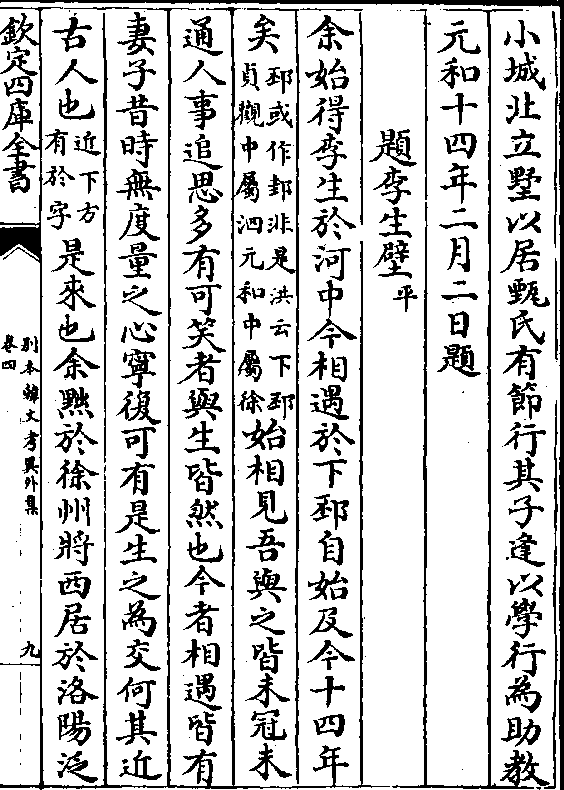 小城北立墅以居甄氏有節行其子逢以學行為助教
元和十四年二月二日題
題李生壁平
余始得李生於河中今相遇於下邳自始及今十四年
矣邳或作邽非是洪云下邳貞觀中屬泗元和中屬徐始相見吾與之皆未冠未
通人事追思多有可笑者與生皆然也今者相遇皆有
妻子昔時無度量之心寧復可有是生之為交何其近
古人也近下方有於字是來也余黜於徐州將西居於洛陽泛
欽定四庫全書
別本韓文考異外集
卷四
九